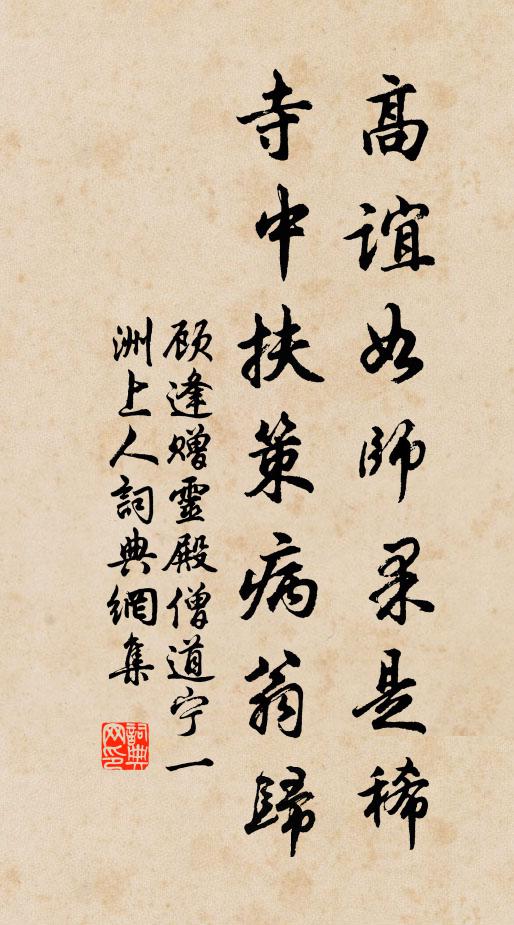 高誼如師果是稀
寺中扶策病翁歸
顾逢贈靈殿僧道宁一
洲上人詞典網集
詞典网印